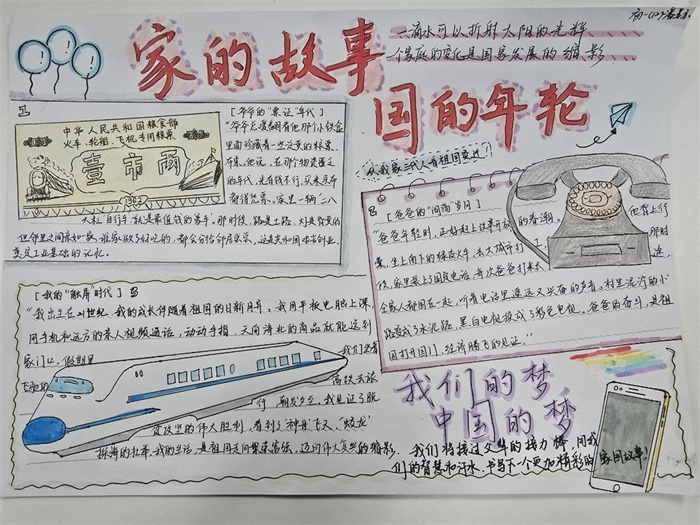 家的故事
国的年轮
一滴水可以折射太阳的光辉
个家庭的变化是国家发展的缩影
从我家三代人看祖国变迁
[爷爷的"票证"年代]
中华人民共和国粮食部
火车、轮船、飞机专用粮票
壹市两
"爷爷总爱翻看他那个小铁盒
里面珍藏着一些泛黄的粮票、
布票。他说，在那个物资匮乏
的年代，光有钱不行，买米买布
都得凭票。家里一辆"二八
大杠"自行车就是最值钱的家当。那时候，路是土路，灯是昏黄的
但邻里之间亲如一家，谁家做了好吃的，都会分给邻居
奠定工业基础的记忆。
[爸爸的"闯荡"岁月]
"爸爸年轻时，正好赶上改革开放的春潮。他背上行
囊，坐上南下的绿皮火车，去大城市打工。那时
候，家里装上了固定电话，每次爸爸打来
全家人都围在一起，听着电话里遥远又亲切的声音。村里泥泞的小
路变成了水泥路，黑白电视换成了彩色电视。爸爸的奋斗，是祖
国打开国门、经济腾飞的见证。"
[我的"触屏"时代]
"我出生在21世纪，我的成长伴随着祖国的日新月异。我用平板电脑上课
用手机和远方的亲人视频通话，动动手指，天南海北的商品就能送到
家门口。假期里
我们坐着
高铁去旅
行，朝发夕至。我见证了脱
贫攻坚的伟大胜利，看到了"神舟"飞天、"蛟龙"
探海的壮举。我的生活，是祖国走向繁荣富强、迈向伟大复兴的缩影。
我们的梦
中国的梦
我们将接过父辈的接力棒，用我
们的智慧和汗水，书写下一个更加精彩的
家国故事！